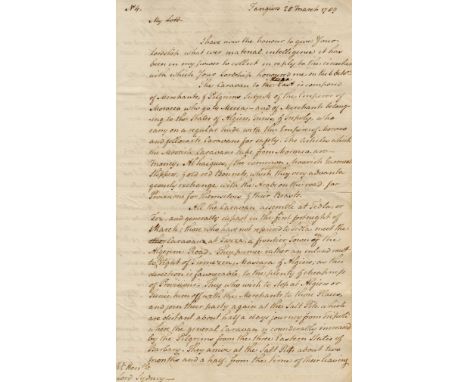 No. 4. Tangier 28 March 1789
My Lord.
I have now the honour to give Your
Lordship what ever material intelligence it has
been in my power to collect in reply to the
with which Your Lordship honoured me on the
The Caravan to the East is composed
of Merchants, & Pilgrims Subjects of the Emperor of
Morocco who go to Mecca - and of Merchants belong-
ing to the States of Algiers, Tunis, & Tripoly, who
cary on a regular trade with this Empire of Morocco
and follow its Caravans for safety. The Articles which
the Morocco Caravans take from Morocco are
money, Alhaiques, / the common Moorish Garment
Slippers, & red Bonnets, which they advanta-
geously exchange with the Arabs on the road for
Provisions for themselves & their Beasts.
All the Caravan assemble at
Fez, and generally depart in the first fortnight of
March; those who have not repaired to meet the
Caravan at a frontier Town of the
Algerine Road. They pursue rather an inland road
to Right of & Algiers, as this
direction is favourable to the plenty & cheapness
of Provisions. They who wish to stop at Algiers or
Tunis turn off with the Merchants to those Places,
and join their party again at the Salt Pits which
are distant about half a days journey from Tripoli
where the general Caravan is considerably increased
by the Pilgrims from the three Eastern States of
Barbary. They arrive at the Salt Pits about two
months and a half from the time of their leaving
Rt Honble
Lord Sydney